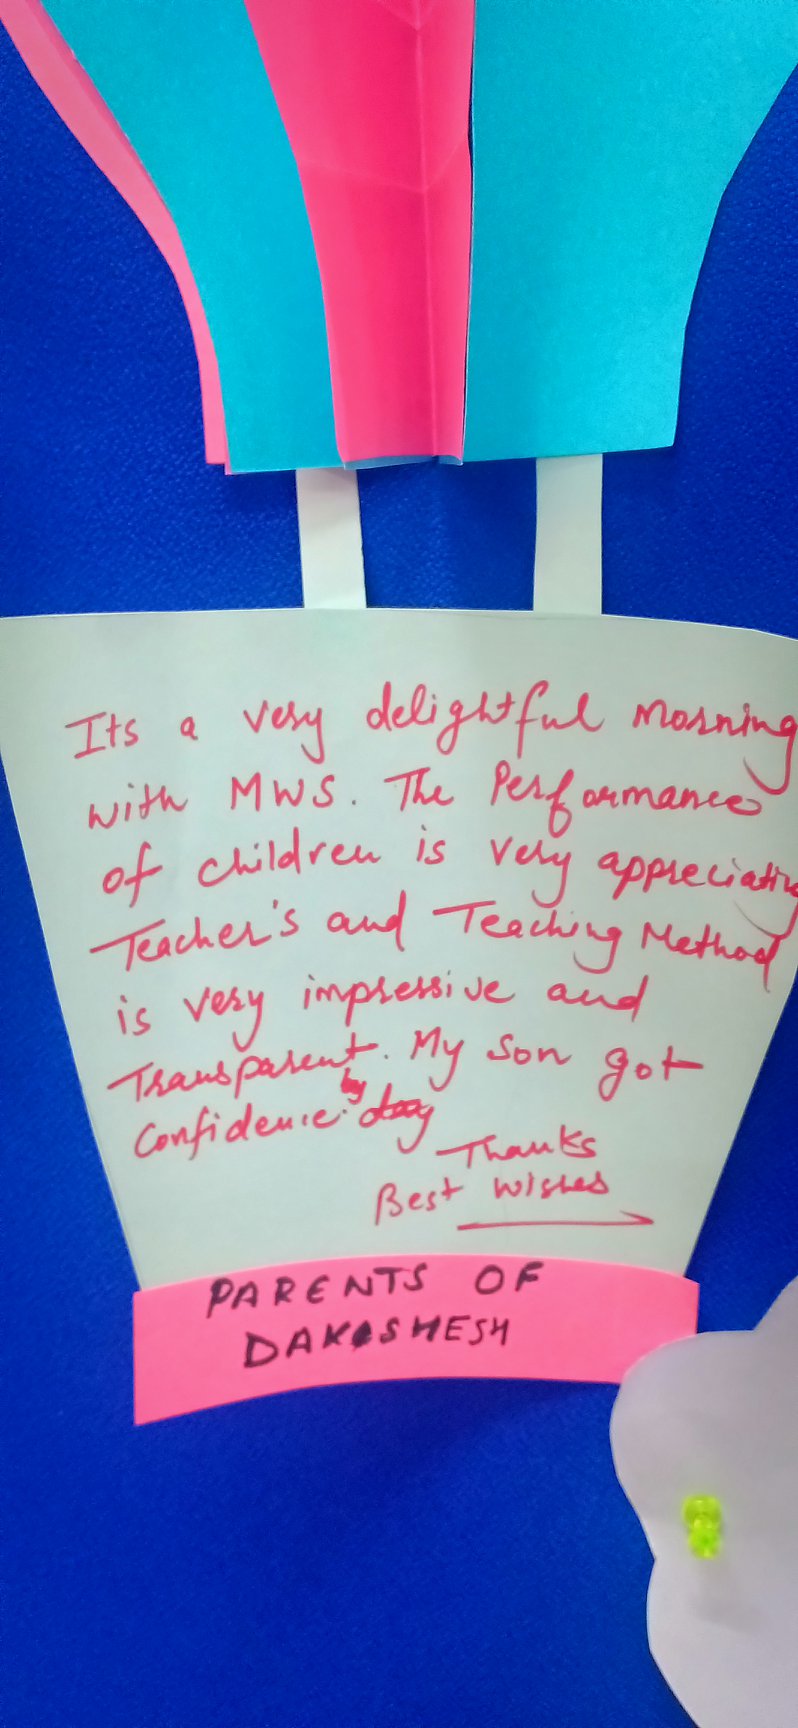 Its a very delightful morning
with MWS. The Performance
of children is very appreciating
Teacher's and Teaching Method
is very impressive and
Transparent. My son got
Confidence.
Thanks
Best wishes
PARENTS OF
DAKSHESH